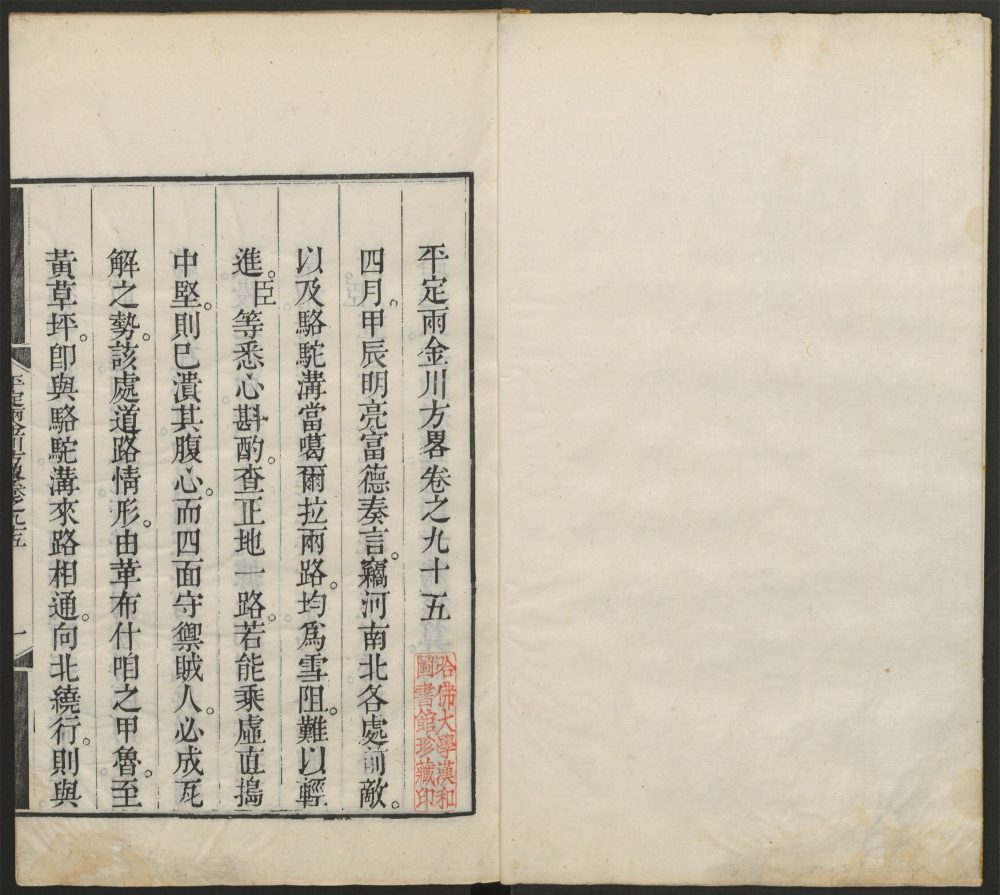 平定兩金川方畧卷之九十五
哈佛大學漢和
圖書館珍藏印
四月。甲辰明亮富德奏言。竊河南北各處前敵。
以及駱駝溝當噶爾拉兩路。均爲雪阻。難以輕
進。臣等悉心斟酌。查正地一路。若能乘虛直搗
中堅。則已潰其腹心。而四面守禦賊人。必成瓦
解之勢。該處道路情形。由革布什咱之甲魯。至
黃草坪。卽與駱駝溝來路相通。向北繞行。則與
平定兩金川方畧卷之九十五
一